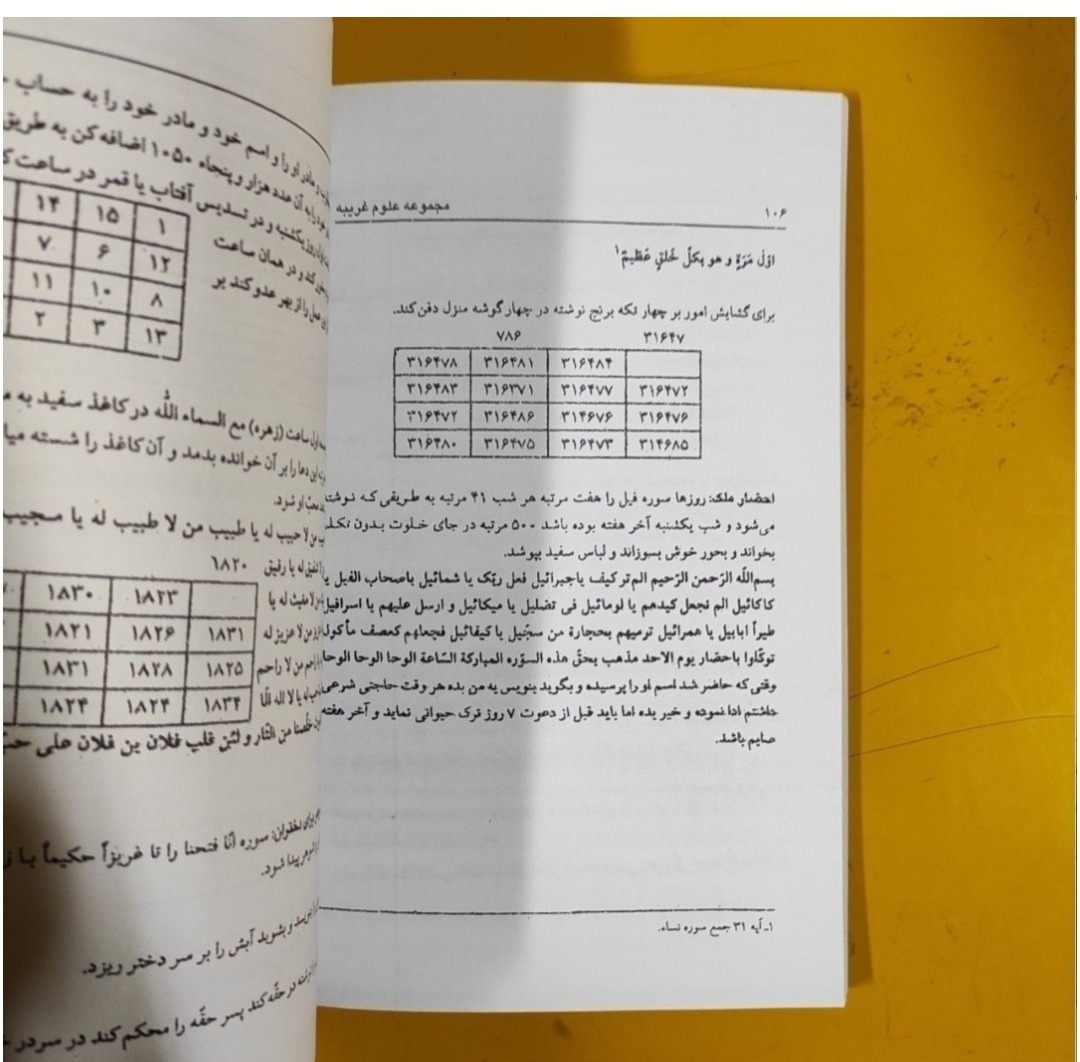 ۱۰۶
مجموعه علوم غریبه
اوّل مَرَةٍ و هو بکلّ خُلقٍ عَظیمٌ۱
برای گشایش امور بر چهار تکه برنج نوشته در چهار گوشه منزل دفن کند.
۳۱۶۴۷ ۷۸۶
۳۱۶۴۸۴ ۳۱۶۴۸۱ ۳۱۶۴۷۸
۳۱۶۴۷۲ ۳۱۶۴۷۷ ۳۱۶۳۷۱ ۳۱۶۴۸۳
۳۱۶۴۷۶ ۳۱۴۶۷۶ ۳۱۶۴۸۶ ۳۱۶۴۷۲
۳۱۴۶۸۵ ۳۱۶۴۷۳ ۳۱۶۴۷۵ ۳۱۶۴۸۰
احضار ملک: روزها سوره فیل را هفت مرتبه هر شب ۴۱ مرتبه به طریقی که نوشته
می‌شود و شب یکشنبه آخر هفته بوده باشد ۵۰۰ مرتبه در جای خلوت بدون تکلم
بخواند و بحور خوش بسوزاند و لباس سفید بپوشد.
بسم‌اللّه الرّحمن الرّحیم الم‌تر کیف یاجبرائیل فعل ربّک یا شمائیل باصحاب الفیل یا
کاکائیل الم نجعل کیدهم یا لومائیل فی تضلیل یا میکائیل و ارسل علیهم یا اسرافیل
طیراً ابابیل یا همرائیل ترمیهم بحجارة من سجّیل یا کیفائیل فجعلهم کعصف مأکول
توکّلوا باحضار یوم الاحد مذهب بحقّ هذه السوّره المبارکة السّاعة الوحا الوحا الوحا
وقتی که حاضر شد اسم او را پرسیده و بگوید بنویس به من بده هر وقت حاجتی شرعی
داشتم ادا نموده و خبر بده اما باید قبل از دعوت ۷ روز ترک حیوانی نماید و آخر هفته
صایم باشد.
۱ـ آیه ۳۱ جمع سوره نساء.
و مادر او را و اسم خود و مادر خود را به حساب
به آن عدد هزار و پنجاه ۱۰۵۰ اضافه کن به طریق
روز یکشنبه و در تسدیس آفتاب یا قمر در ساعت
۱ ۱۵ ۱۴
۱۲ ۶ ۷
۸ ۱۰ ۱۱
۱۳ ۳ ۲
کند و در همان ساعت
عمل را از بهر عدو کند بر
اول ساعت (زهره) مع السماء اللّه در کاغذ سفید به
این دعا را بر آن خوانده بدمد و آن کاغذ را شسته
محبّ او شود.
من لا حبیب له یا طبیب من لا طبیب له یا مجیب
له یا رفیق ۱۸۲۰
۱۸۲۳ ۱۸۳۰
۱۸۳۱ ۱۸۲۶ ۱۸۲۱
۱۸۲۵ ۱۸۲۸ ۱۸۳۱
۱۸۳۴ ۱۸۲۴ ۱۸۲۴
له یا
من لا عزیز له
من لا راحم
له یا لا اله الّا
من النّار و لئن قلب فلان بن فلان علی
سوره انّا فتحنا را تا عزیزاً حکیماً با
پیدا شود.
و بشوید آبش را بر سر دختر ریزد.
در حقّه کند پسر حقّه را محکم کند در سردر